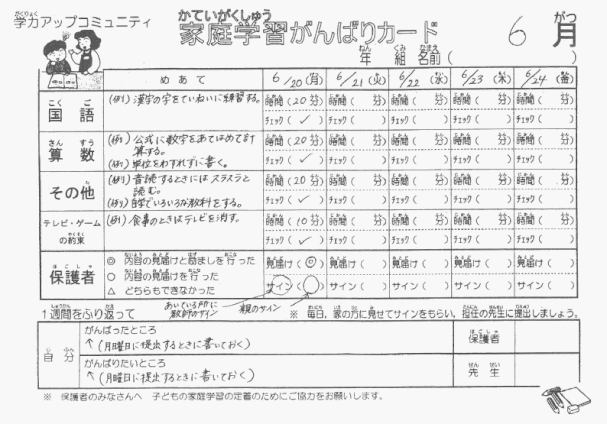 学力アップコミュニティ
かていがくしゅう
家庭学習がんばりカード
6月
年 組 名前( )
めあて 6/20(月) 6/21(火) 6/22(水) 6/23(木) 6/24(金)
国語 (例)漢字の字をていねいに練習する。 時間(20分) 時間( 分) 時間( 分) 時間( 分) 時間( 分)
チェック(✓) チェック( ) チェック( ) チェック( ) チェック( )
算数 (例)公式に数字をあてはめて計算する。 時間(20分) 時間( 分) 時間( 分) 時間( 分) 時間( 分)
(例)単位をわすれずに書く。 チェック(✓) チェック( ) チェック( ) チェック( ) チェック( )
その他 (例)音読するときにはスラスラと読む。 時間(20分) 時間( 分) 時間( 分) 時間( 分) 時間( 分)
(例)自学でいろいろな教科をする。 チェック(✓) チェック( ) チェック( ) チェック( ) チェック( )
テレビ・ゲームの約束 (例)食事のときはテレビを消す。 時間(10分) 時間( 分) 時間( 分) 時間( 分) 時間( 分)
チェック(✓) チェック( ) チェック( ) チェック( ) チェック( )
保護者 ◎ 内容の見届けと励ましを行った 見届け(◎) 見届け( ) 見届け( ) 見届け( ) 見届け( )
○ 内容の見届けを行った
△ どちらもできなかった サイン( ) サイン( ) サイン( ) サイン( ) サイン( )
あいている所に教師のサイン 親のサイン
1週間をふり返って ※ 毎日,家の方に見せてサインをもらい,担任の先生に提出しましょう。
自分 がんばったところ 保護者
↑(月曜日に提出するときに書いておく)
がんばりたいところ 先生
↑(月曜日に提出するときに書いておく)
※ 保護者のみなさんへ 子どもの家庭学習の定着のためにご協力をお願いします。